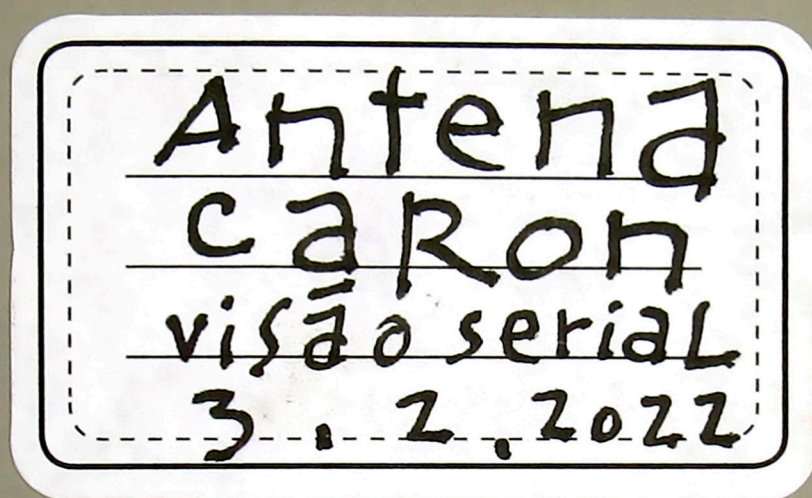 Antena
caRon
visão seriaL
3.2.2022